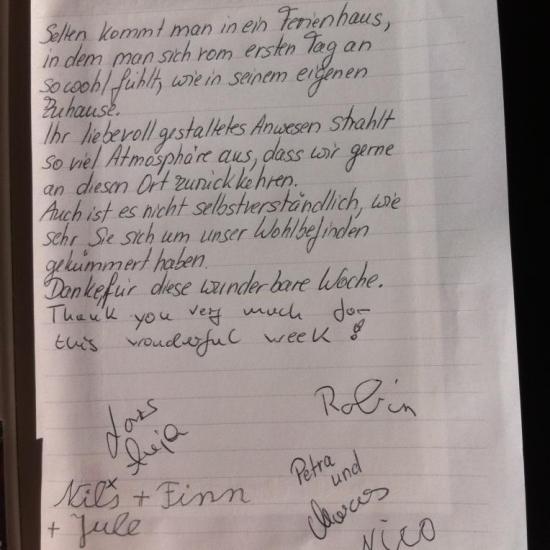 Selten kommt man in ein Ferienhaus,
in dem man sich vom ersten Tag an
so wohl fühlt, wie in seinem eigenen
Zuhause.
Ihr liebevoll gestaltetes Anwesen strahlt
so viel Atmosphäre aus, dass wir gerne
an diesen Ort zurückkehren.
Auch ist es nicht selbstverständlich, wie
sehr Sie sich um unser Wohlbefinden
gekümmert haben.
Danke für diese wunderbare Woche.
Thank you very much for
this wonderful week!
Robin
Lars
Petra
und
Marcus
Nils + Finn
+ Jule
Nico